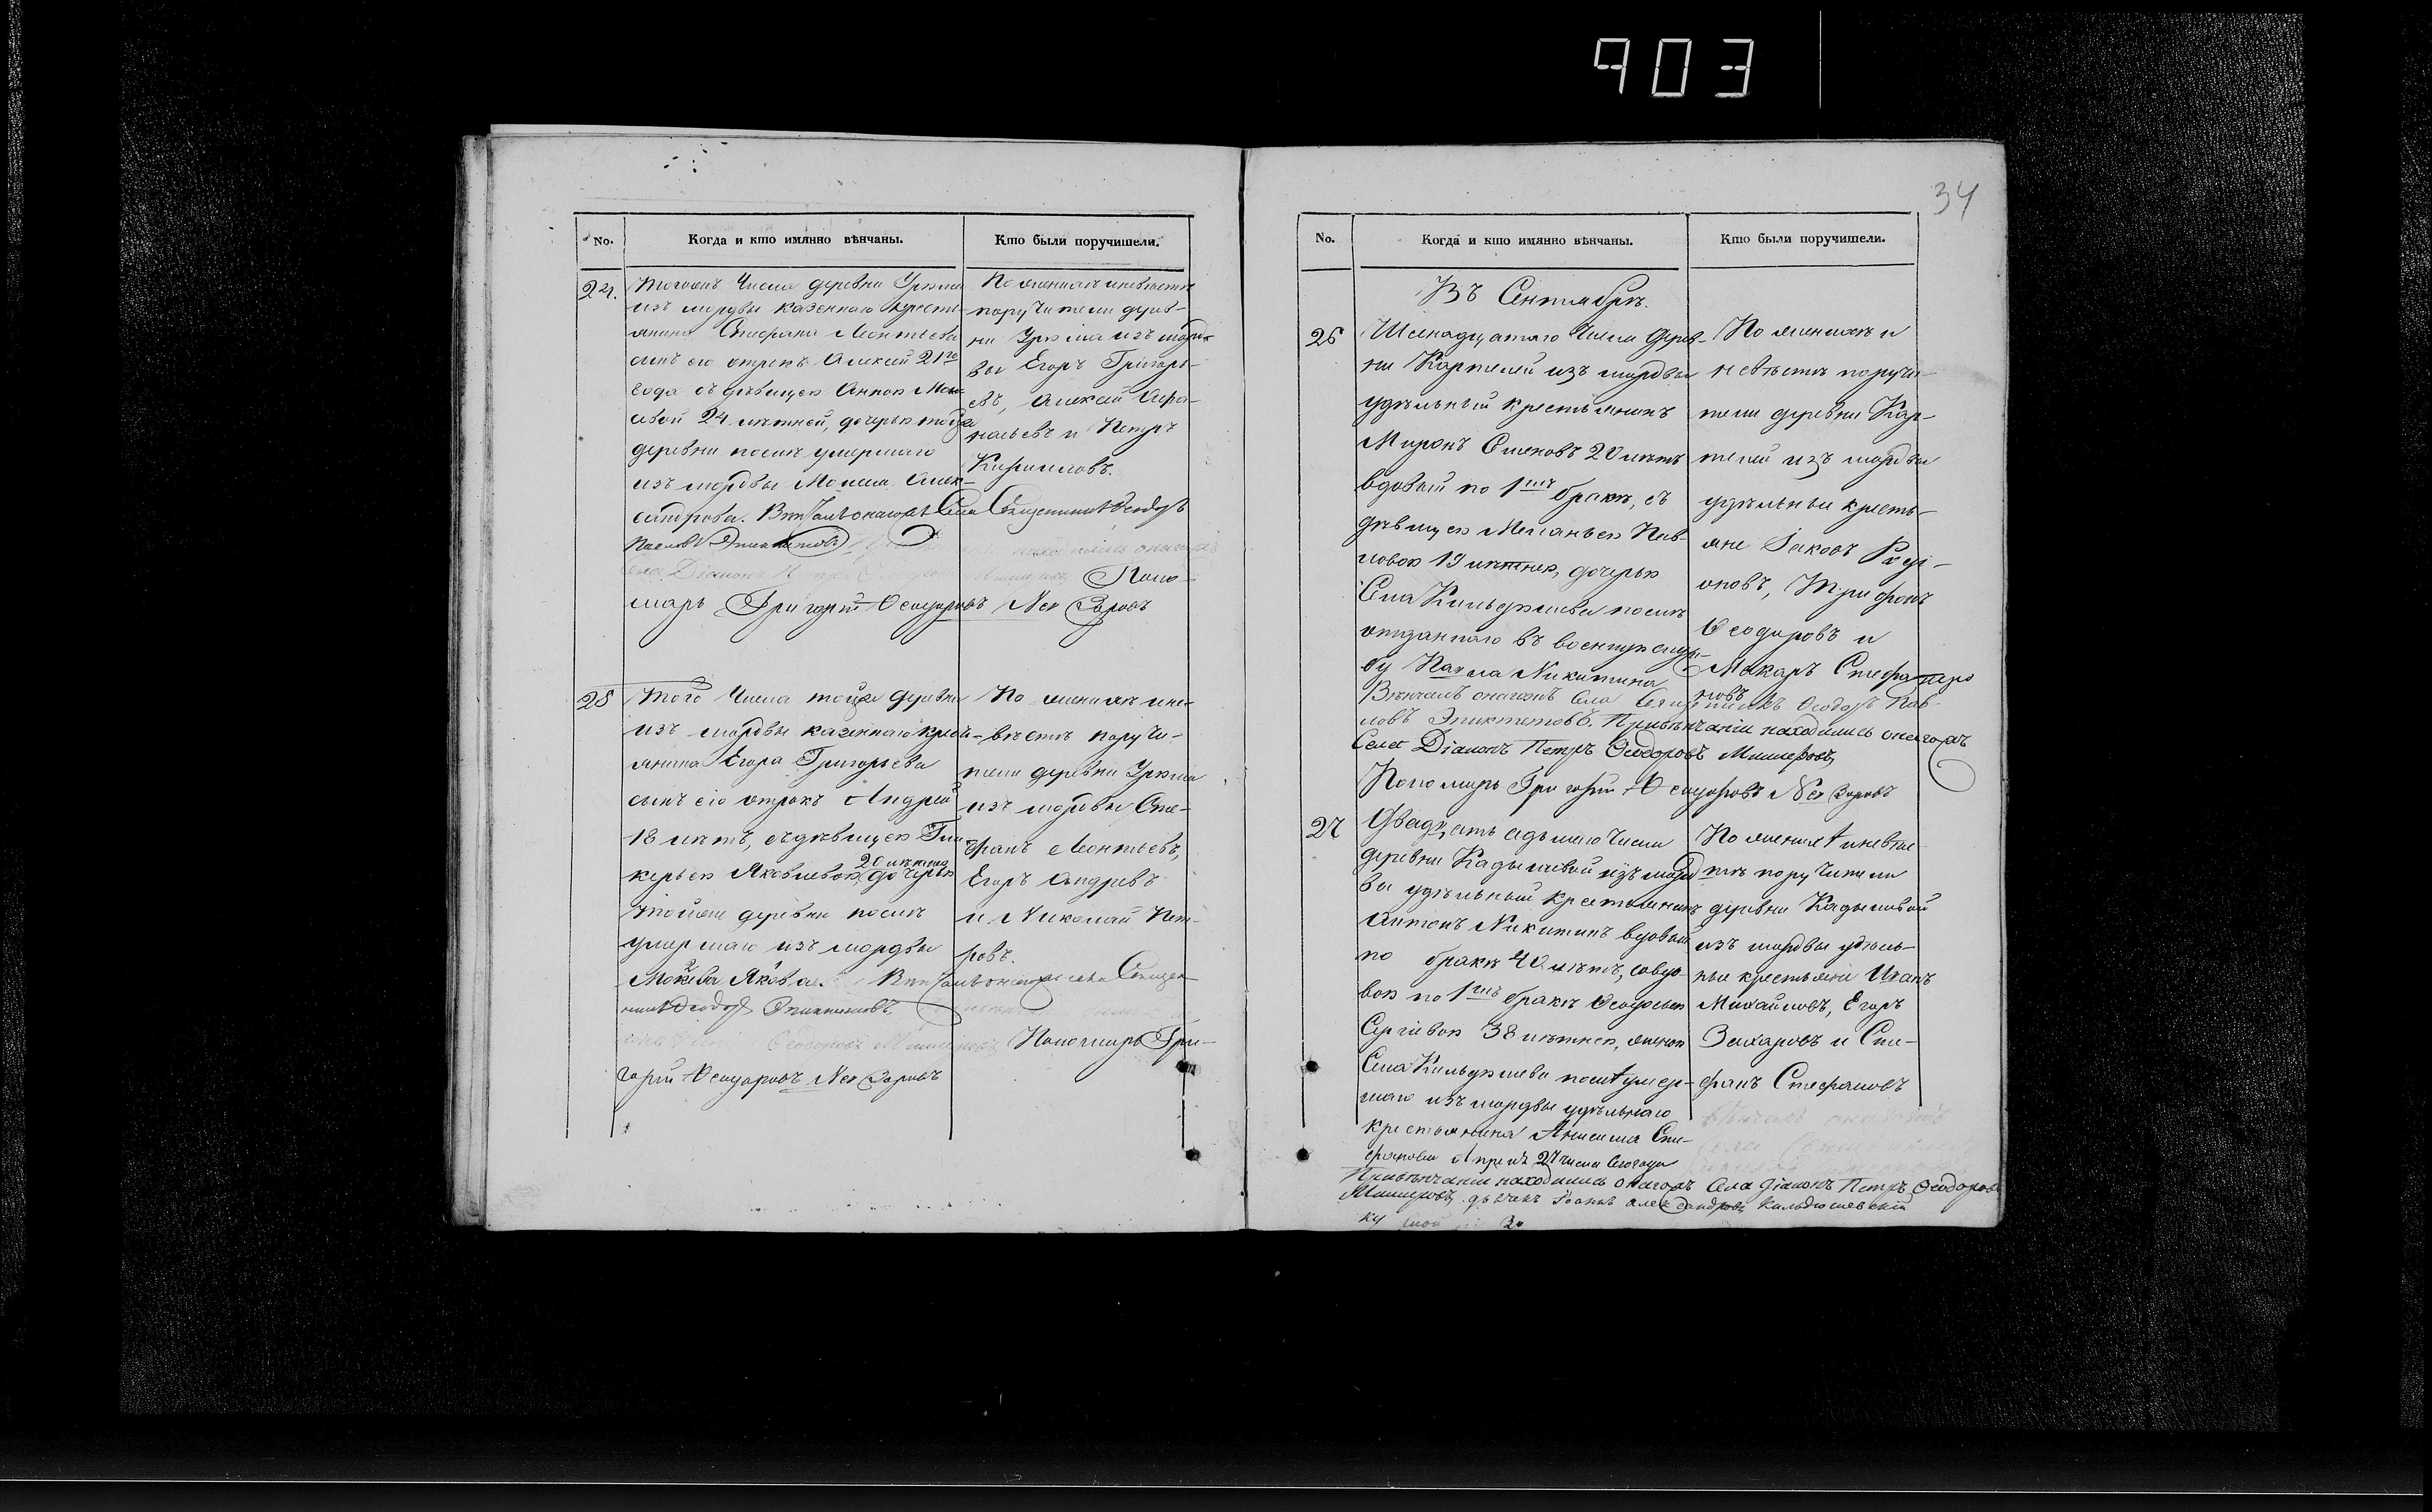 903
34
No.
Когда и кто имянно вѣнчаны.
Кто были поручители.
24.
Тогожъ Числа деревни Уркма
изъ мордвы казеннаго крестья-
янина Стефана Леонтьева
сынъ его отрокъ Алексей 21го
года съ дѣвицею Анною
24 лѣтней, дочерью тойже
деревни послѣ умершаго
изъ мордвы Алек-
сандрова. Вѣнчалъ онагожъ Села Священникъ Ѳеодоръ
Павловъ Эпиктетовъ находились онагожъ
села Діаконъ Поно-
марь Григорій Ѳеодоровъ
По женихѣ и невѣстѣ
поручители дерев-
ни Уркма изъ морд-
вы Егоръ Григорь-
евъ, Алексей Афа-
насьевъ и Петръ
Кириловъ.
25
Того Числа тойже деревни
изъ мордвы казеннаго кресть-
янина Егора Григорьева
сынъ его отрокъ Андрей
18 лѣтъ, съ дѣвицею Гли-
керьею Яковлевою 20 лѣтней дочерью
тойже деревни послѣ
умершаго изъ мордвы
Якова. Вѣнчалъ онагожъ села Священ-
никъ Ѳеодоръ Эпиктетовъ
Ѳеодоровъ Пономарь Гри-
горій Ѳеодоровъ
По женихѣ и не-
вѣстѣ поручи-
тели деревни Уркма
изъ мордвы Сте-
фанъ Леонтьевъ,
Егоръ Андреевъ
и Николай Пет-
ровъ.
No.
Когда и кто имянно вѣнчаны.
Кто были поручители.
Въ Сентябрѣ.
26
Шеснадцатаго Числа Дерев-
ни Кармелей изъ мордвы
удѣльный крестьянинъ
Миронъ Семеновъ 20 лѣтъ
вдовый по 1мъ бракѣ, съ
дѣвицею Меланьею Пав-
ловою 19 лѣтнею, дочерью
Села Кильдюшева послѣ
отданнаго въ военную служ-
бу Павла Никитина
Вѣнчалъ онагожъ Села Священникъ Ѳеодоръ Пав-
ловъ Эпиктетовъ. Привѣнчаніи находились онагожъ
Села Діаконъ Петръ Ѳеодоровъ
Пономарь Григорій Ѳеодоровъ
По женихѣ и
невѣстѣ поручи-
тели деревни Кар-
мелей изъ мордвы
удѣльные кресть-
яне Іаковъ Роди-
оновъ, Трифонъ
Ѳеодоровъ и
Макаръ Стефа-
новъ
27
Двадцать седьмаго Числа
деревни Кадышевой изъ морд-
вы удѣльный крестьянинъ
Антонъ Никитинъ вдовый
по бракѣ 40 лѣтъ, совдо-
вою по 1мъ бракѣ Ѳеодосьею
Сергіевою 38 лѣтнею, женою
Села Кильдюшева послѣ умер-
шаго изъ мордвы удѣльнаго
крестьянина Анисима Сте-
фанова Апреля 27 числа Сегогода
Привѣнчаніи находились онагожъ Села Діаконъ Петръ Ѳеодоровъ
дьячекъ Іоаннъ Александровъ Кильдюшевскій
По женихѣ и невѣс-
тѣ поручители
деревни Кадышевой
изъ мордвы удѣль-
ные крестьяне Иванъ
Михайловъ, Егоръ
Захаровъ и Сте-
фанъ Стефановъ